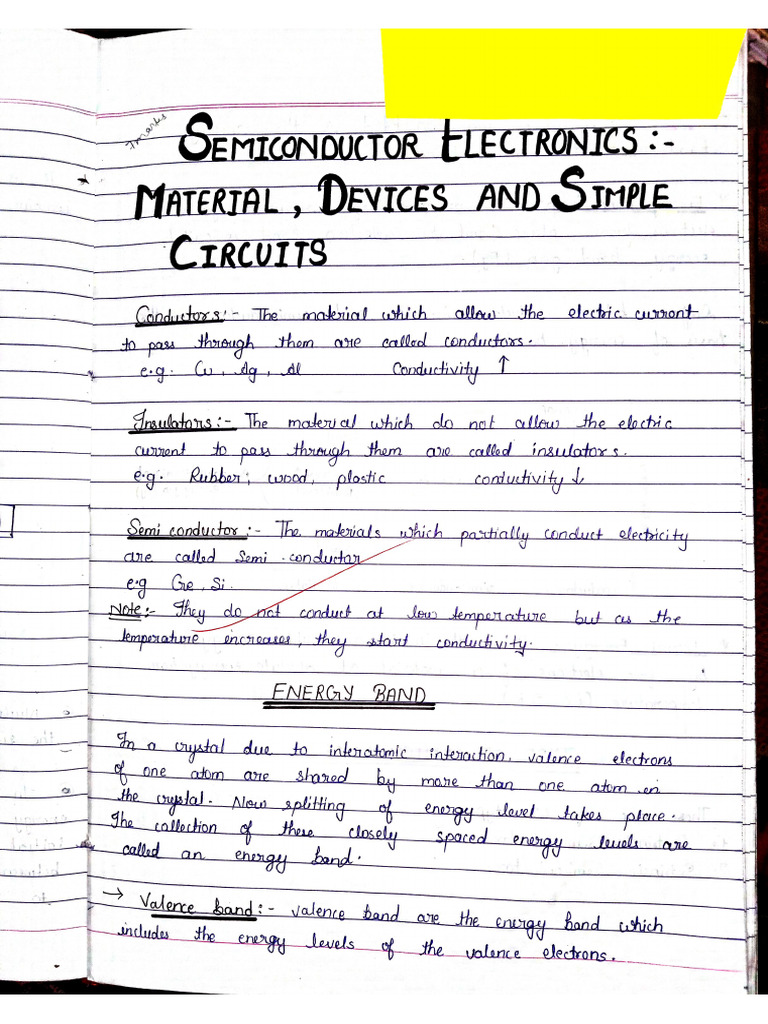 7 marks
SEMICONDUCTOR ELECTRONICS :-
MATERIAL, DEVICES AND SIMPLE
CIRCUITS
Conductors:- The material which allow the electric current
to pass through them are called conductors.
e.g. Cu, Ag, Al Conductivity ↑
Insulators:- The material which do not allow the electric
current to pass through them are called insulators.
e.g. Rubber, wood, plastic conductivity ↓
Semi conductor:- The materials which partially conduct electricity
are called semi-conductor
e.g Ge, Si.
Note:- They do not conduct at low temperature but as the
temperature increases, they start conductivity.
ENERGY BAND
In a crystal due to interatomic interaction, valence electrons
of one atom are shared by more than one atom in
the crystal. Now splitting of energy level takes place.
The collection of these closely spaced energy levels are
called an energy band.
→ Valence band:- valence band are the energy band which
includes the energy levels of the valence electrons.